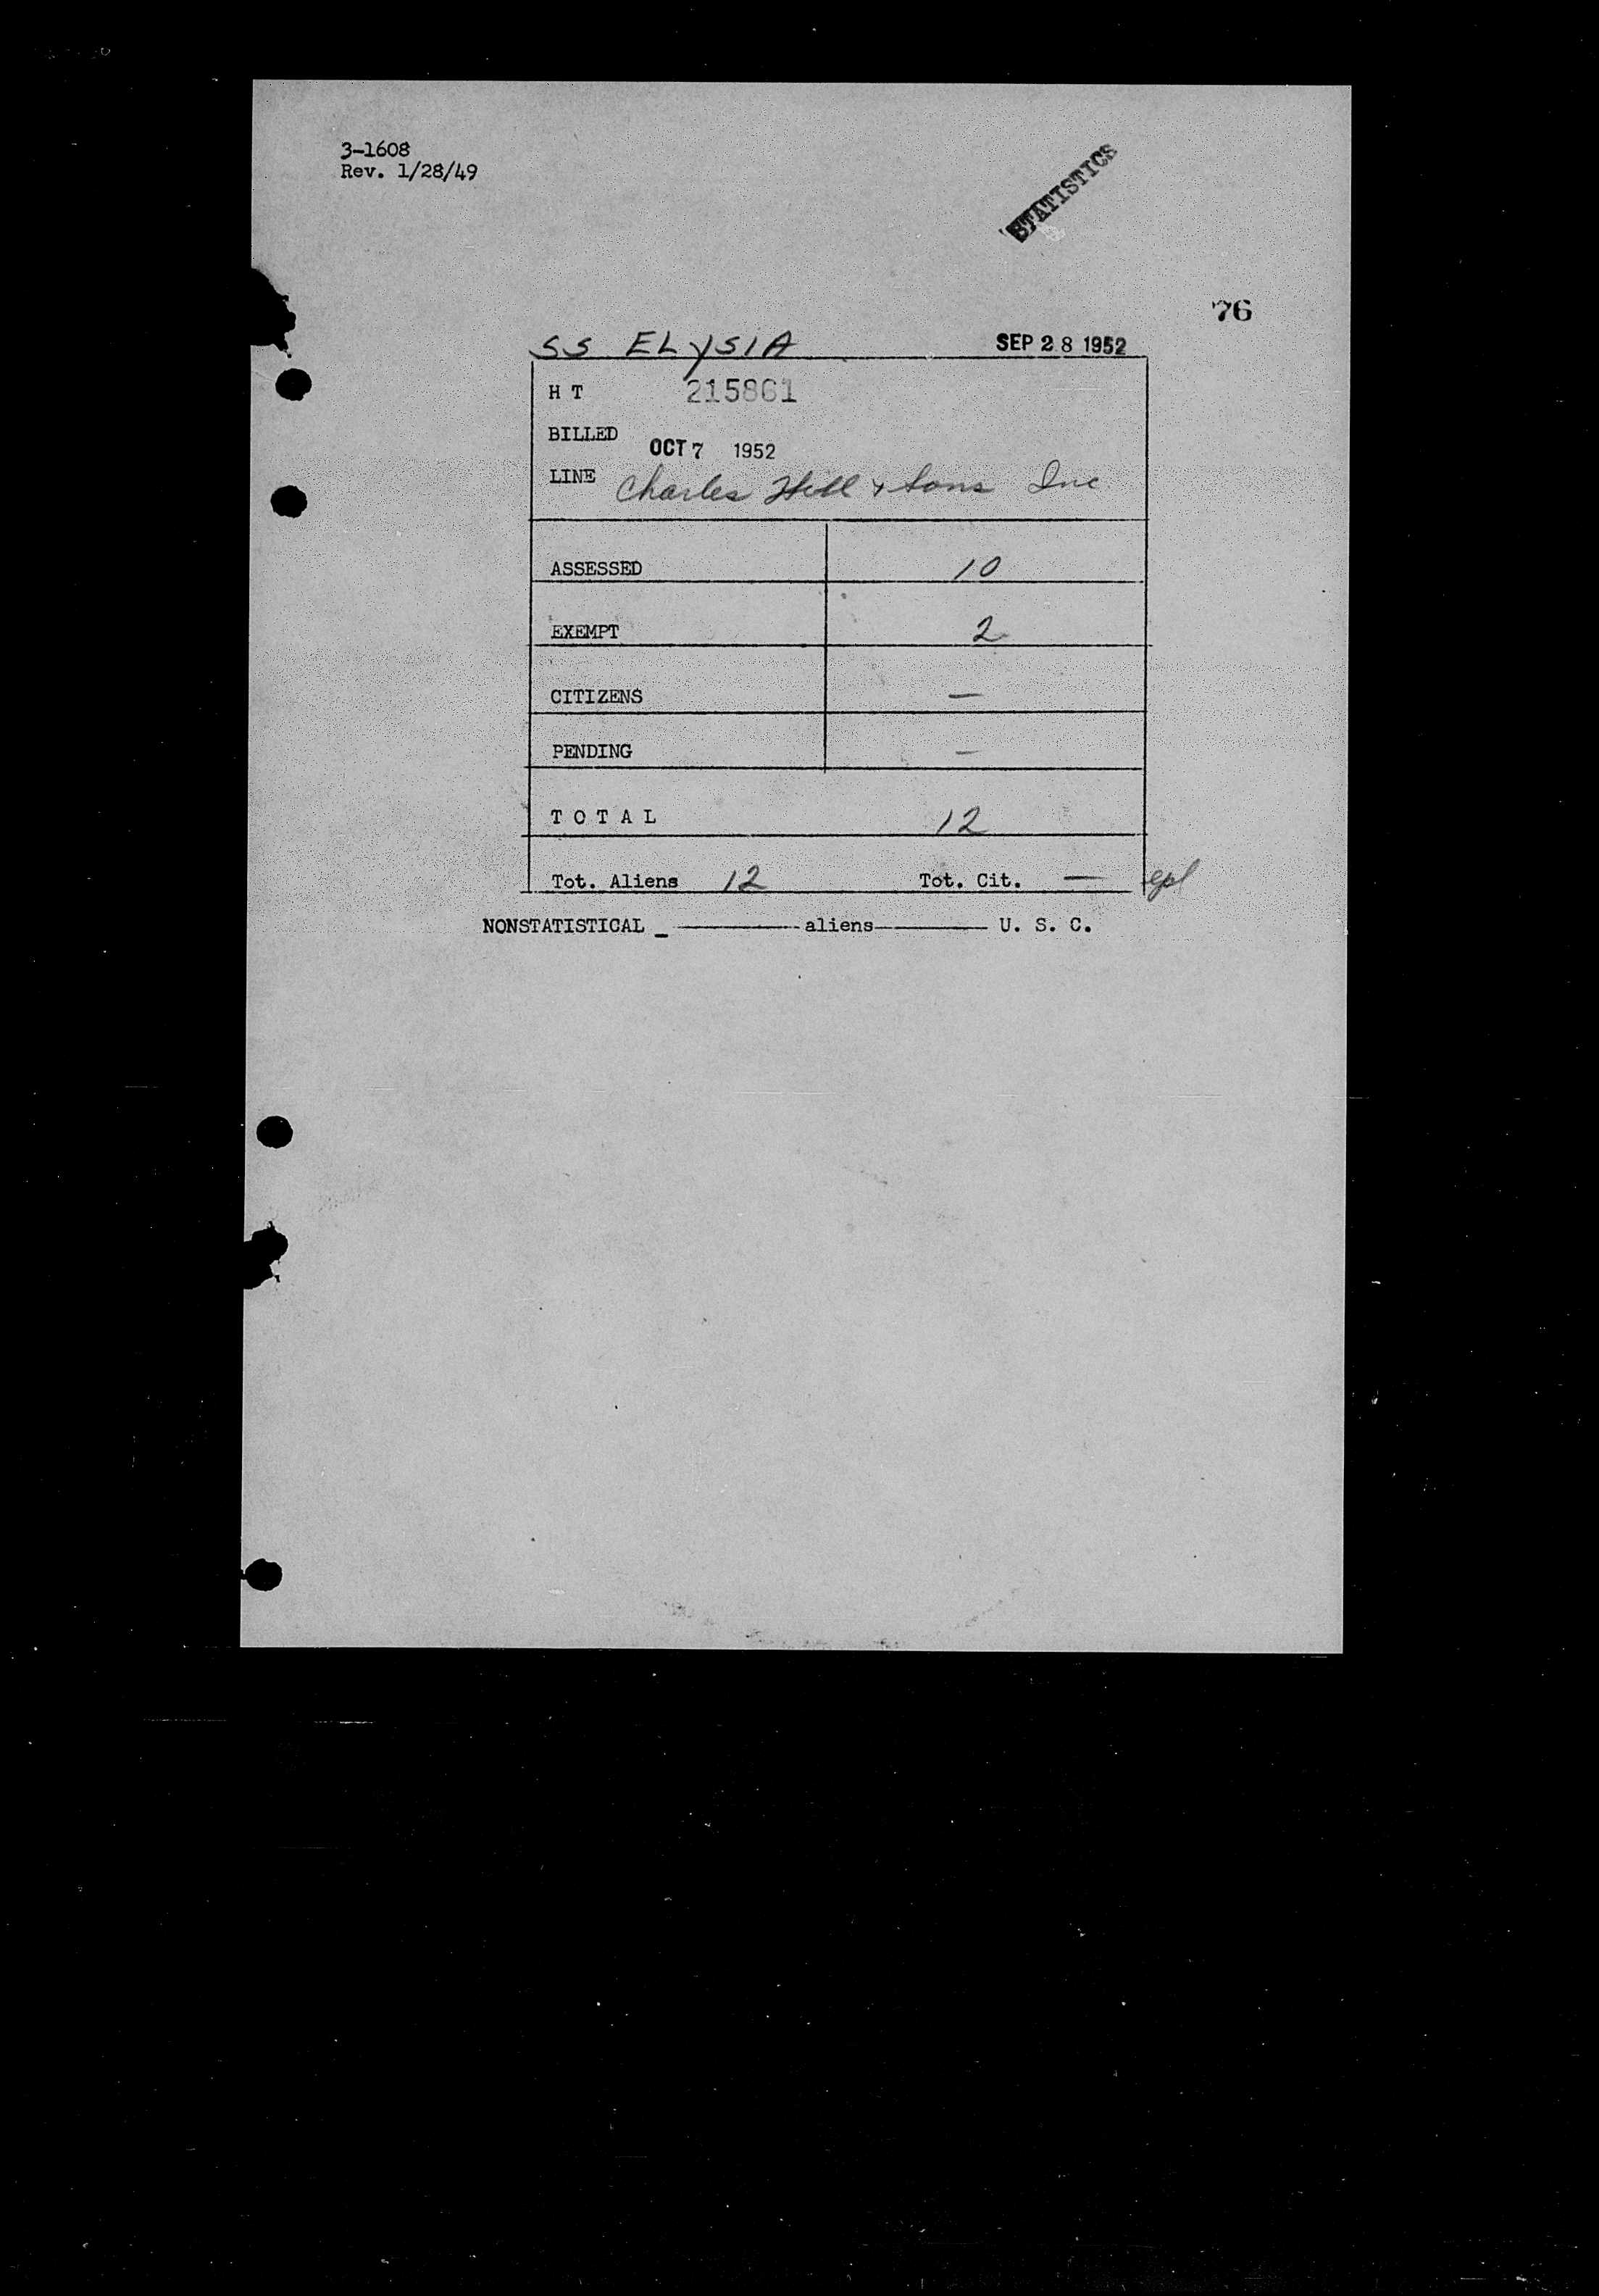 3-1608
Rev. 1/28/49
STATISTICS
76
SS ELYSIA SEP 28 1952
H T 215861
BILLED OCT 7 1952
LINE Charles Hill & Sons Inc
ASSESSED 10
EXEMPT 2
CITIZENS —
PENDING —
T O T A L 12
Tot. Aliens 12 Tot. Cit. — epl
NONSTATISTICAL _ ——— aliens ——— U. S. C.